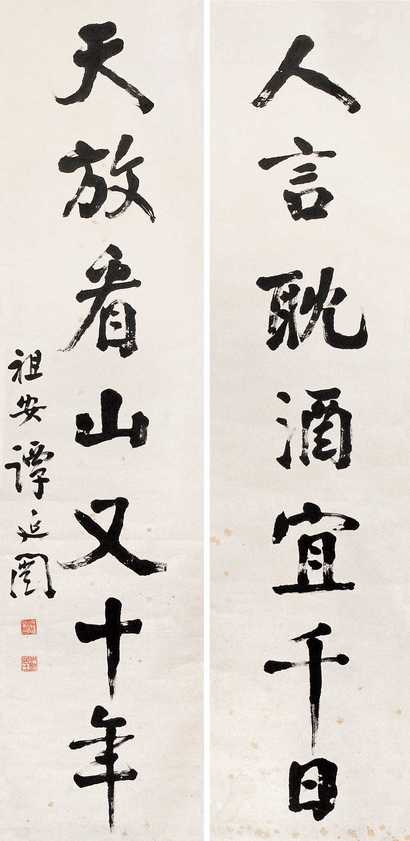 人言耽酒宜千日
天放看山又十年
祖安譚延闓